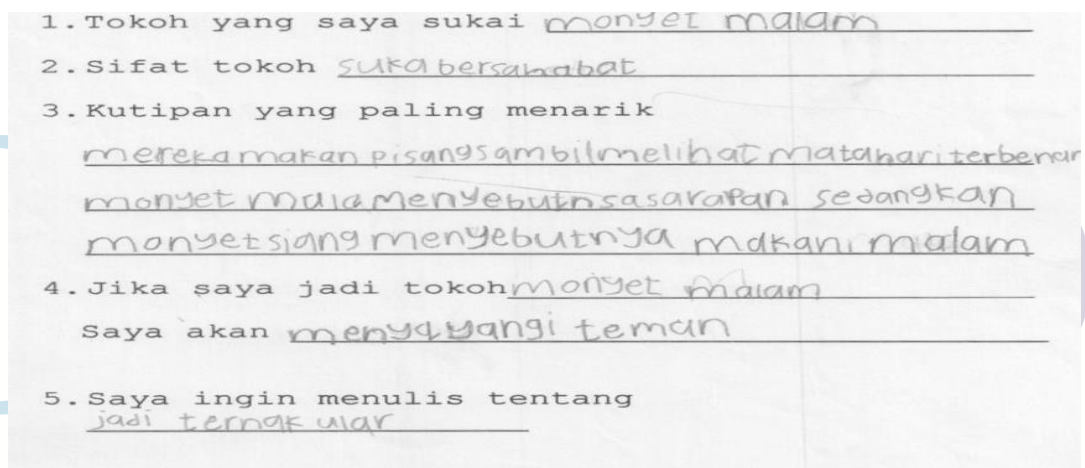 1. Tokoh yang saya sukai monyet malam
2. Sifat tokoh suka bersahabat
3. Kutipan yang paling menarik
mereka makan pisang sambil melihat matahari terbenar
monyet mala menyebutnsasarapan sedangkan
monyet siang menyebutnya makani malam
4. Jika saya jadi tokoh monyet malam
Saya akan menyayangi teman
5. Saya ingin menulis tentang
jadi ternak ular